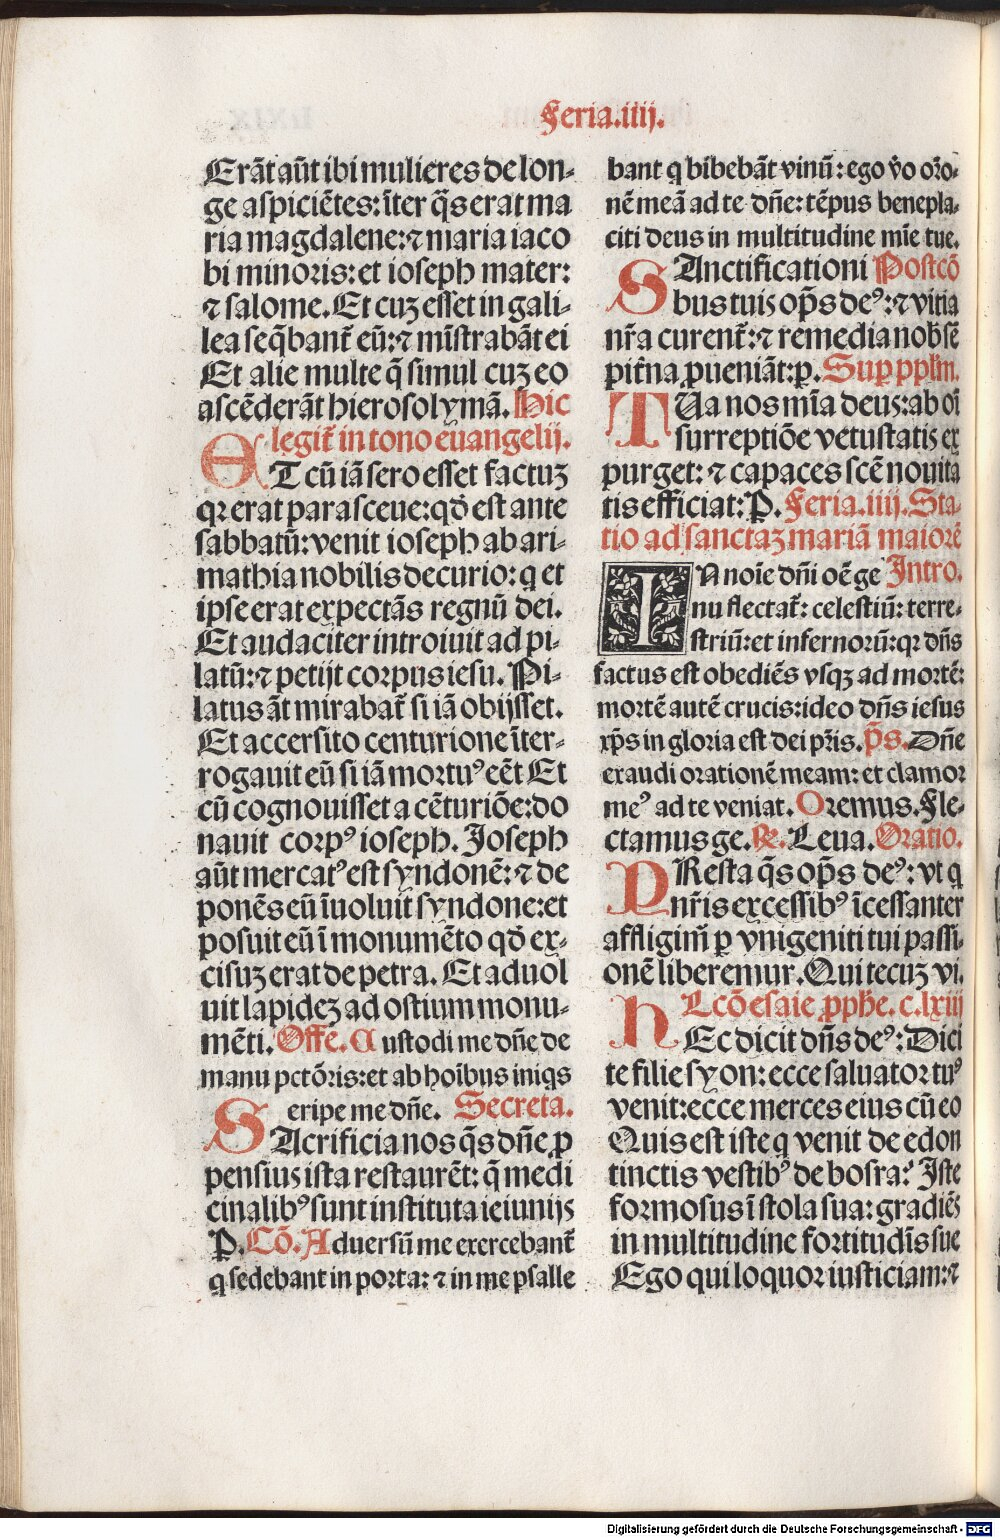 Feria.iiij.
Erāt aūt ibi mulieres de lon-
ge aspiciētes: īter q̄s erat ma
ria magdalene: ⁊ maria iaco
bi minoris: et ioseph mater:
⁊ salome. Et cuz esset in gali-
lea seq̄bant̄ eū: ⁊ mīstrabāt ei
Et alie multe q̄ simul cuz eo
ascēderāt hierosolymā. Hic
legit̄ in tono euangelij.
ET cū iā sero esset factuz
qꝛ erat parasceue: qđ est ante
sabbatū: venit ioseph ab ari-
mathia nobilis decurio: q et
ipse erat expectās regnū dei.
Et audaciter introiuit ad pi-
latū: ⁊ petijt corpus iesu. Pi-
latus āt mirabat̄ si iā obijsset.
Et accersito centurione īter-
rogauit eū si iā mortuꝰ eēt Et
cū cognouisset a cēturiōe: do
nauit corpꝰ ioseph. Joseph
aūt mercatꝰ est syndonē: ⁊ de
ponēs eū īuoluit syndone: et
posuit eū ī monumēto qđ ex-
cisuz erat de petra. Et aduol
uit lapidez ad ostium monu-
mēti. Offe. Custodi me dn̄e de
manu pctōris: et ab hoībus iniqs
eripe me dn̄e. Secreta.
SAcrificia nos q̄s dn̄e ꝓ
pensius ista restaurēt: q̄ medi
cinalibꝰ sunt instituta ieiunijs
P. Cō. Aduersū me exercebant̄
q sedebant in porta: ⁊ in me psalle
bant q bibebāt vinū: ego v̄o oꝛo-
nē meā ad te dn̄e: tēpus benepla-
citi deus in multitudine mīe tue.
SAnctificationi Postcō
bus tuis op̄s deꝰ: ⁊ vitia
nr̄a curent̄: ⁊ remedia nob̄ sē
pit̄na ꝓueniāt: ꝑ. Suꝑ pplm̄.
TUa nos mīa deus: ab oī
surreptiōe vetustatis ex
purget: ⁊ capaces scē nouita
tis efficiat: P. Feria.iiij. Sta-
tio ad sanctaz mariā maiorē
IN noīe dn̄i oē ge Intro.
nu flectat̄: celestiū: terre-
striū: et infernorū: qꝛ dn̄s
factus est obediēs vsqꝫ ad mortē:
mortē autē crucis: ideo dn̄s iesus
xp̄s in gloria est dei pr̄is. p̄s. Dn̄e
exaudi orationē meam: et clamor
meꝰ ad te veniat. Oremus. Fle-
ctamus ge. ℟. Leua. Oratio.
PResta q̄s op̄s deꝰ: vt q
nr̄is excessibꝰ īcessanter
affligim̄ ꝑ vnigeniti tui passi-
onē liberemur. Qui tecuz vi.
Lcō esaie ꝓphe. c. lxiij
HEc dicit dn̄s deꝰ: Dici
te filie syon: ecce saluator tuꝰ
venit: ecce merces eius cū eo
Quis est iste q venit de edon
tinctis vestibꝰ de bosra? Iste
formosus ī stola sua: gradiēs
in multitudine fortitudīs sue
Ego qui loquor iusticiam: ⁊
Digitalisierung gefördert durch die Deutsche Forschungsgemeinschaft - DFG